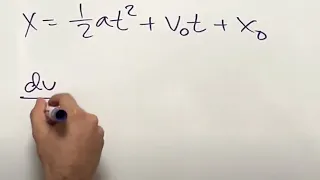 x = 1/2 at² + v₀t + x₀
dv